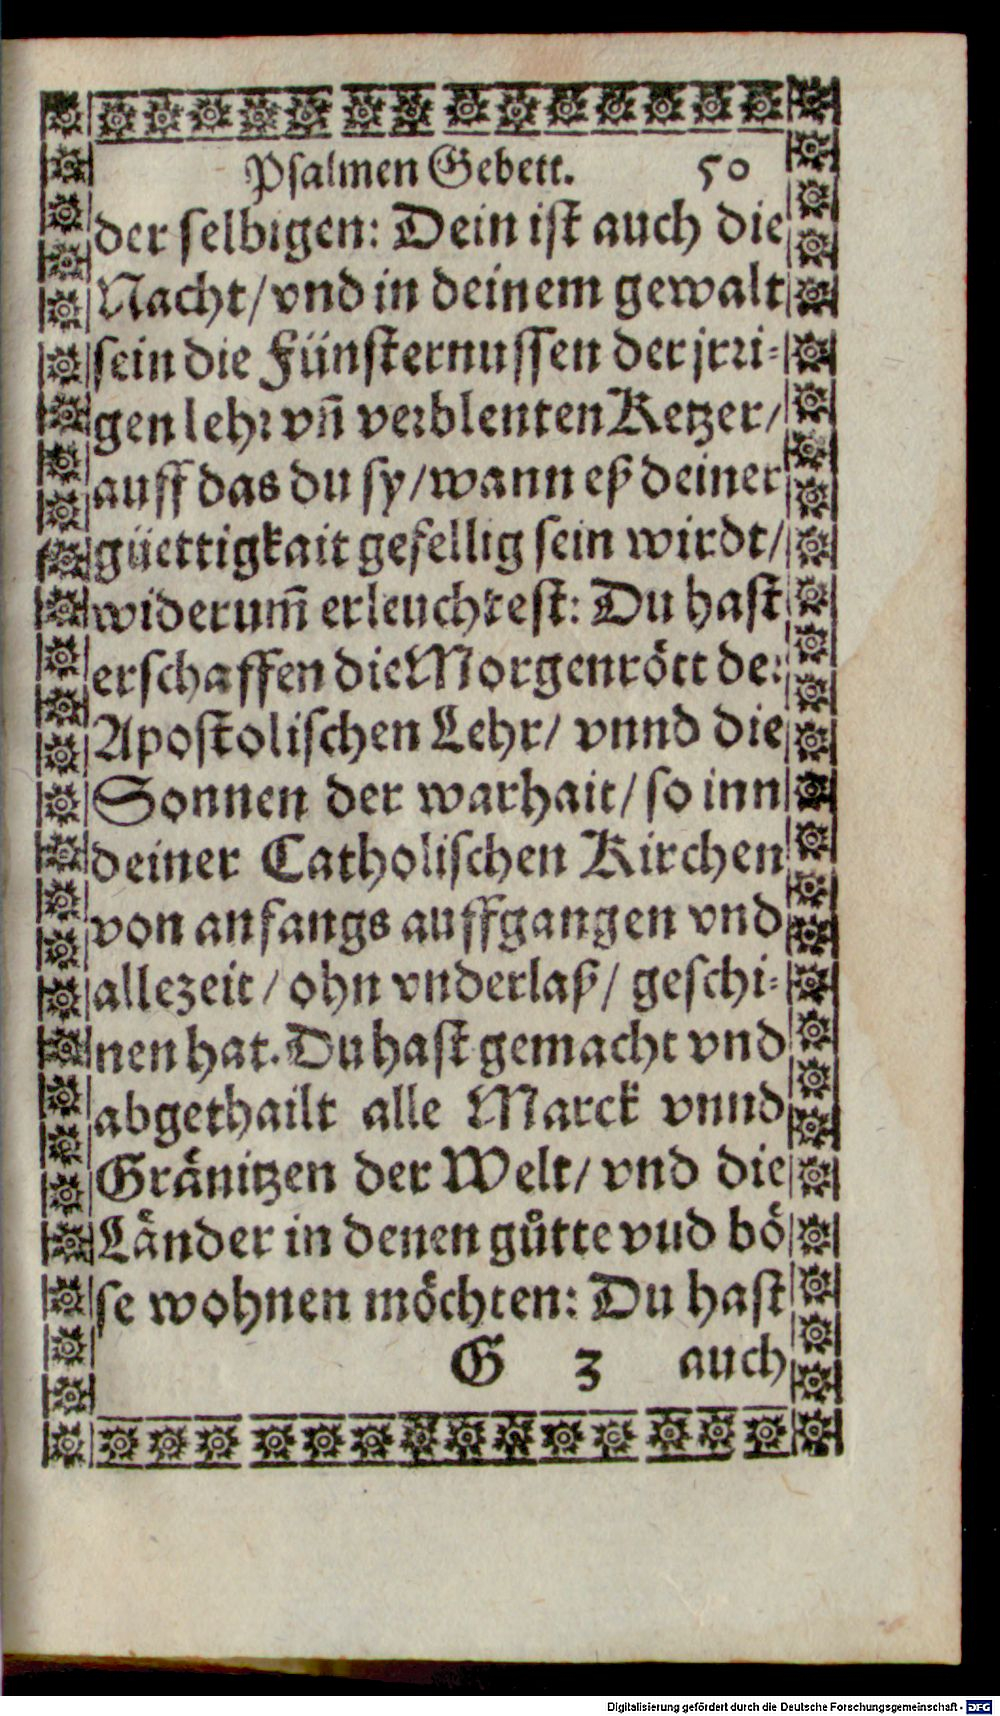 Psalmen Gebett. 50
der selbigen: Dein ist auch die
Nacht/ vnd in deinem gewalt
sein die Fünsternussen der jrri-
gen lehr vñ verblenten Ketzer/
auff das du sy/ wann eß deiner
güettigkait gefellig sein wirdt/
widerum̃ erleuchtest: Du hast
erschaffen die Morgenrött der
Apostolischen Lehr/ vnnd die
Sonnen der warhait/ so inn
deiner Catholischen Kirchen
von anfangs auffgangen vnd
allezeit/ ohn vnderlaß/ geschi-
nen hat. Du hast gemacht vnd
abgethailt alle Marck vnnd
Gränitzen der Welt/ vnd die
Länder in denen gůtte vud bö
se wohnen möchten: Du hast
G 3 auch
Digitalisierung gefördert durch die Deutsche Forschungsgemeinschaft - DFG